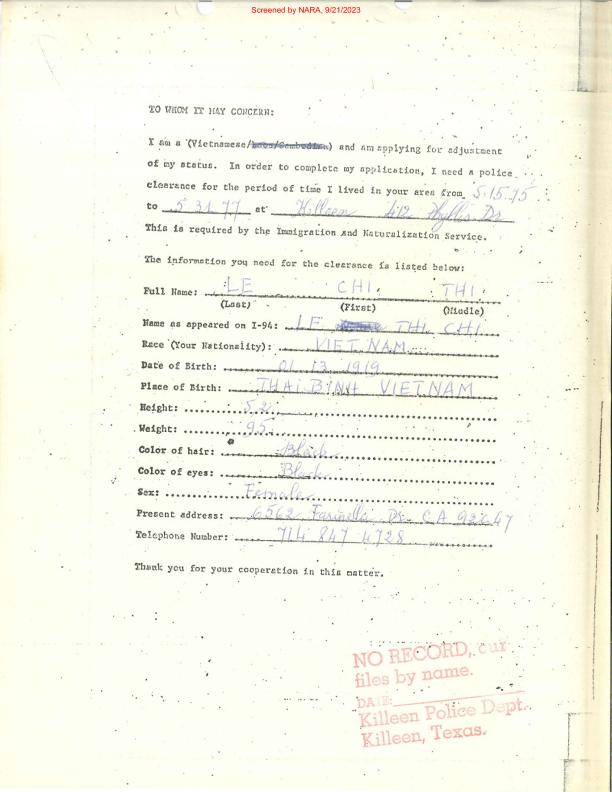 Screened by NARA, 9/21/2023
TO WHOM IT MAY CONCERN:
I am a (Vietnamese/Laos/Cambodian) and am applying for adjustment
of my status. In order to complete my application, I need a police
clearance for the period of time I lived in your area from 5.15.75
to 5 31 77 at Killeen 412 Phyllis Dr
This is required by the Immigration and Naturalization Service.
The information you need for the clearance is listed below:
Full Name: LE CHI THI
(Last) (First) (Middle)
Name as appeared on I-94: LE THI CHI
Race (Your Nationality): VIET NAM
Date of Birth: 01 13 1919
Place of Birth: THAI BINH VIETNAM
Height: 5.2
Weight: 95
Color of hair: Black
Color of eyes: Black
Sex: Female
Present address: 6562 Farinella Dr. CA 92647
Telephone Number: 714 847 4728
Thank you for your cooperation in this matter.
NO RECORD, our
files by name.
DATE:
Killeen Police Dept.
Killeen, Texas.